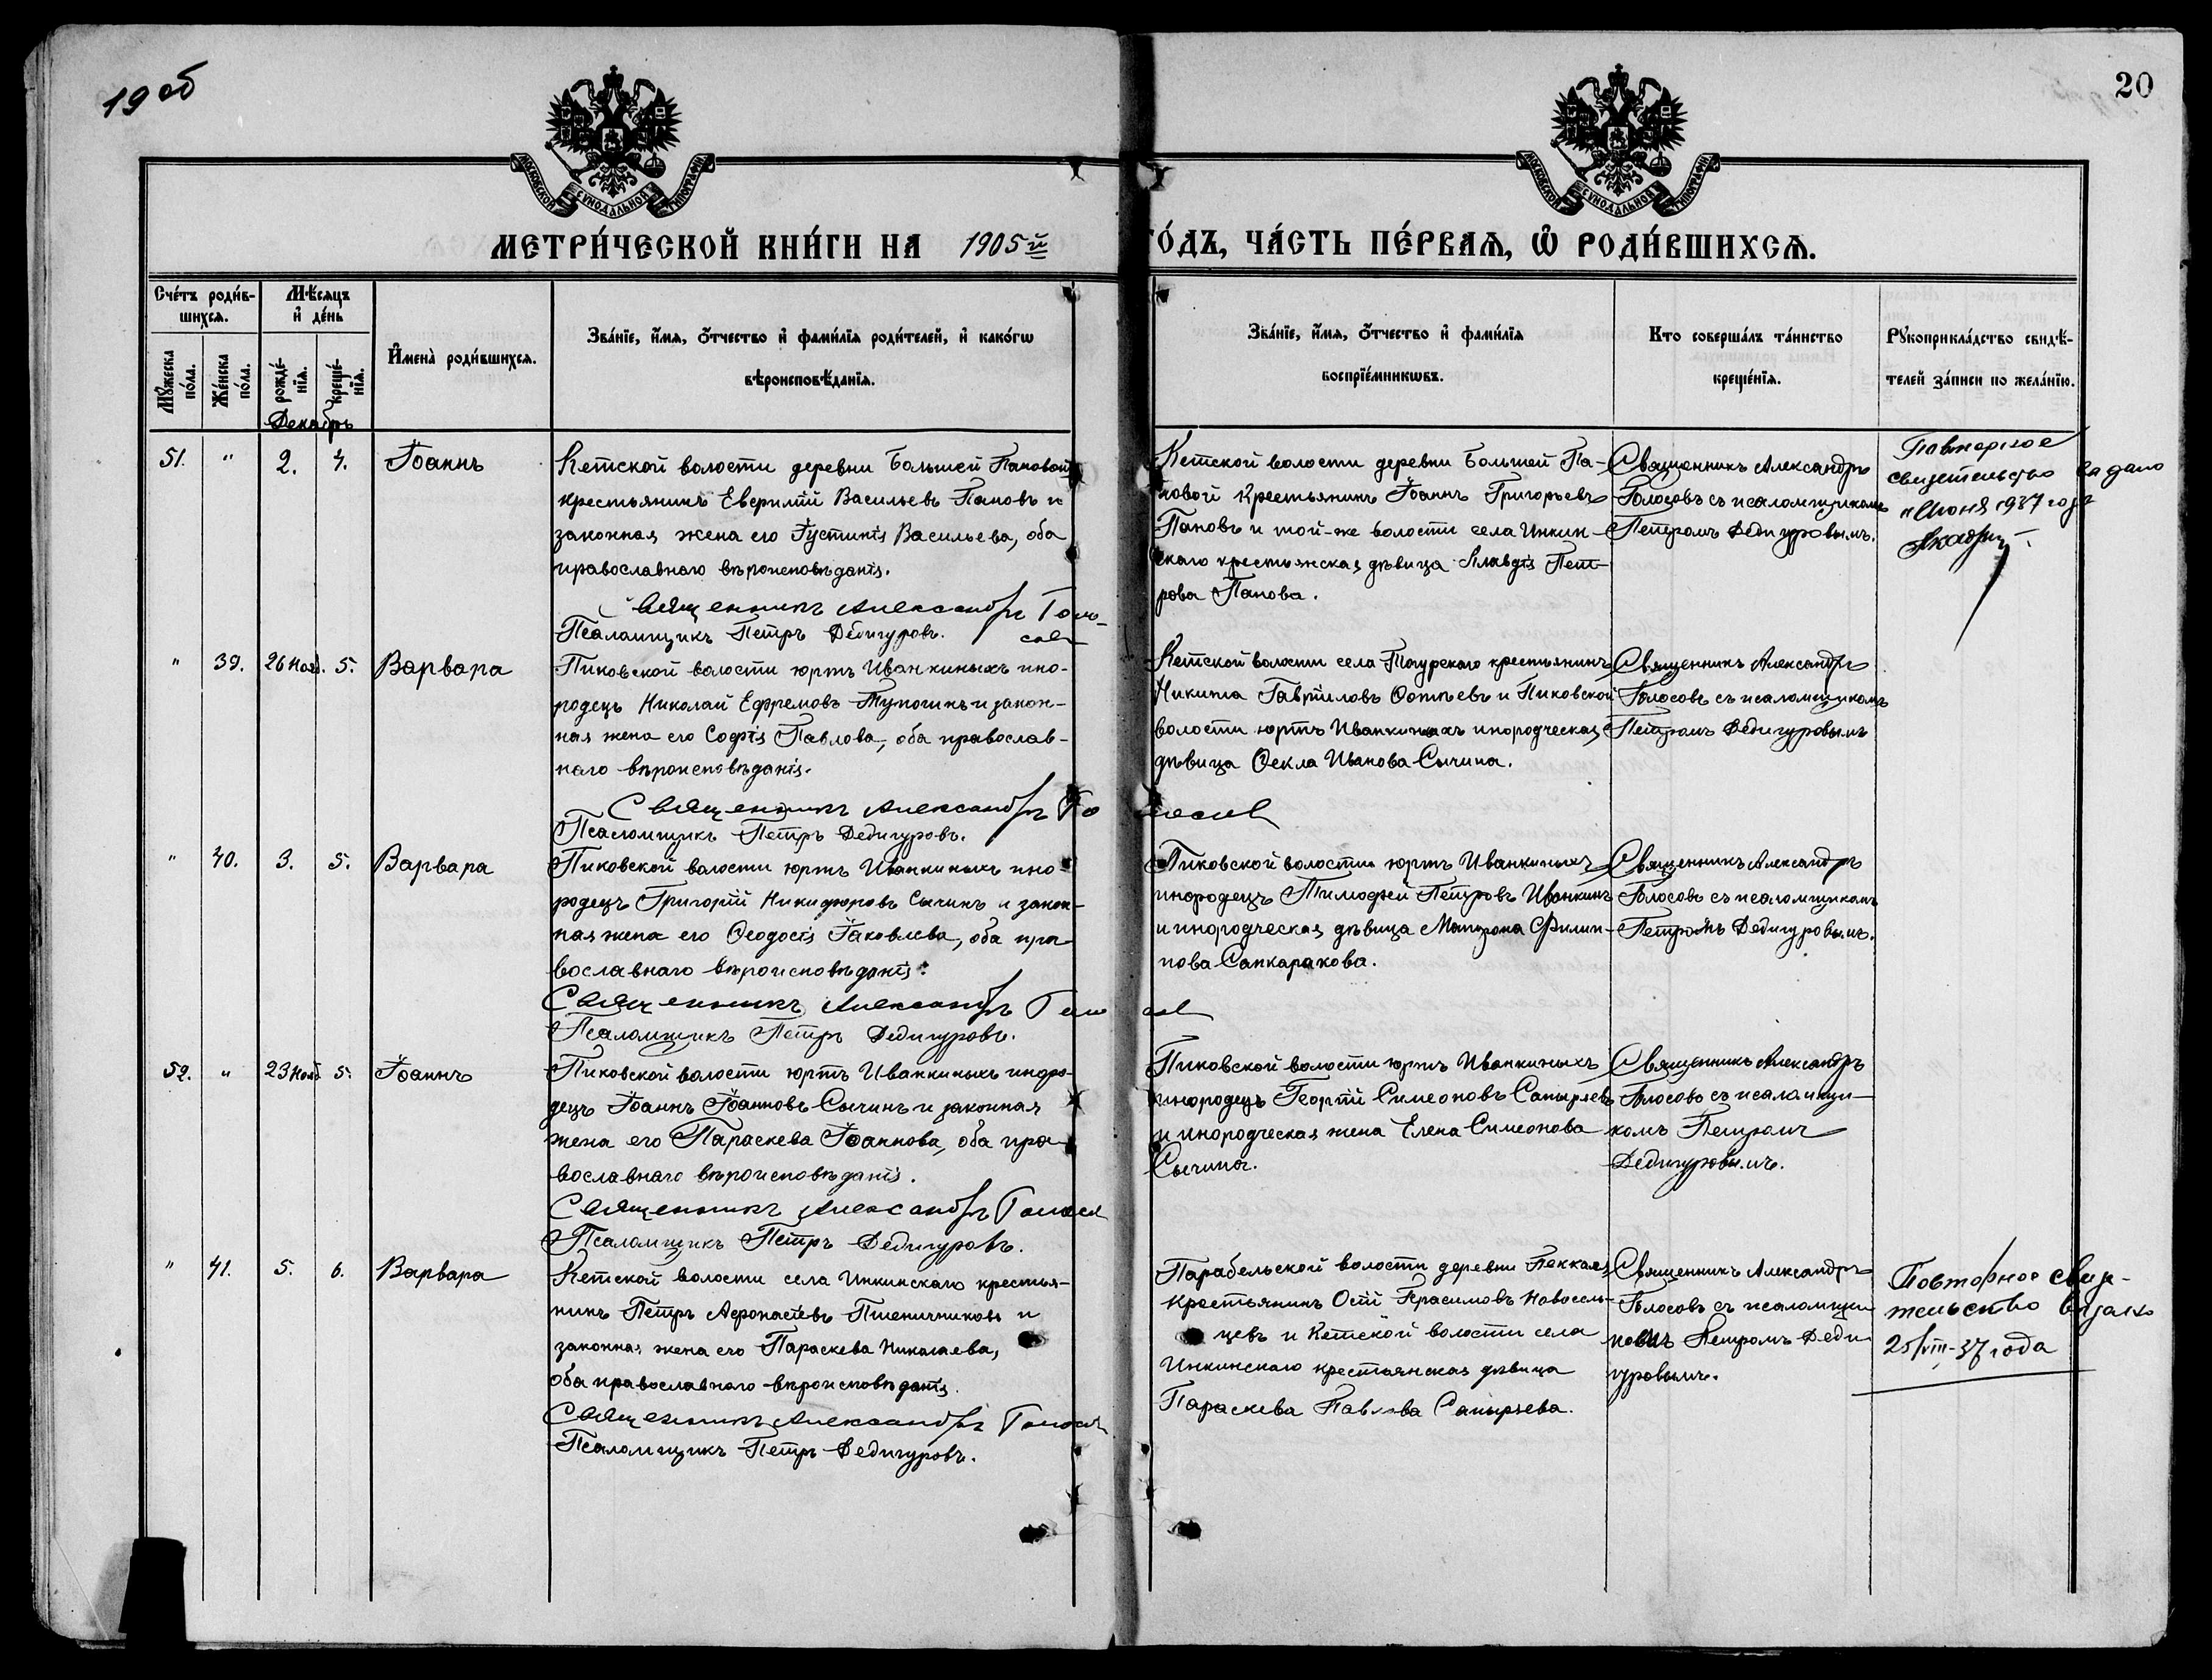 19 об
20
МОСКОВСКОЙ СѴНОДАЛЬНОЙ ТИПОГРАФІИ
МОСКОВСКОЙ СѴНОДАЛЬНОЙ ТИПОГРАФІИ
МЕТРИ́ЧЕСКОЙ КНИ́ГИ НА 1905 й
ГО́ДЪ, ЧА́СТЬ ПЕ́РВАѦ, Ѡ҆ РОДИ́ВШИХСѦ.
Сче́тъ роди́в-
шихсѧ.
Мꙋ́жеска по́ла.
Же́нска по́ла.
Мѣ́сѧцъ
и҆ де́нь
рожде́-
нїѧ.
креще́-
нїѧ.
И҆мена̀ роди́вшихсѧ.
Зва́нїе, и҆́мѧ, ѻ҆́тчество и҆ фами́лїѧ роди́телей, и҆ како́гѡ
вѣроисповѣ́данїѧ.
Зва́нїе, и҆́мѧ, ѻ҆́тчество и҆ фами́лїѧ
воспрїе́мникѡвъ.
Кто соверша́лъ та́инство
креще́нїѧ.
Рꙋкоприкла́дство свидѣ́-
телей за́писи по жела́нїю.
Декабрь
51. " 2. 4. Іоаннъ
Кетской волости деревни Большей Пановой
крестьянинъ Васильевъ Пановъ и
законная жена его Іустинія Васильева, оба
православнаго вѣроисповѣданія.
Священникъ Александръ Голо-
совъ
Псаломщикъ Петръ Дедигуровъ.
Кетской волости деревни Большей Па-
новой крестьянинъ Іоаннъ Григорьевъ
Пановъ и той-же волости села Инкин-
скаго крестьянская дѣвица Клавдія Пет-
рова Панова.
Священникъ Александръ
Голосовъ съ псаломщикомъ
Петромъ Дедигуровымъ.
Повторное
свидетельство выдано
Июня 1937 года
" 39. 26 Нояб. 5. Варвара
Пиковской волости юртъ Иванкиныхъ ино-
родецъ Николай Ефремовъ и закон-
ная жена его Софія Павлова, оба православ-
наго вѣроисповѣданія.
Священникъ Александръ Голосовъ
Псаломщикъ Петръ Дедигуровъ.
Кетской волости села Тогурскаго крестьянинъ
Никита Гавріиловъ Ѳотѣевъ и Пиковской
волости юртъ Иванкиныхъ инородческая
дѣвица Ѳекла Иванова Сычина.
Священникъ Александръ
Голосовъ съ псаломщикомъ
Петромъ Дедигуровымъ
" 40. 3. 5. Варвара
Пиковской волости юртъ Иванкиныхъ ино-
родецъ Григорій Никифоровъ Сычинъ и закон-
ная жена его Ѳеодосія Іаковлева, оба пра-
вославнаго вѣроисповѣданія.
Священникъ Александръ Голосовъ
Псаломщикъ Петръ Дедигуровъ.
Пиковской волости юртъ Иванкиныхъ
инородецъ Тимофей Петровъ Иванкинъ
и инородческая дѣвица Матрона Филип-
пова Санкаракова.
Священникъ Александръ
Голосовъ съ псаломщикомъ
Петромъ Дедигуровымъ.
52. " 23 Нояб. 5. Іоаннъ
Пиковской волости юртъ Иванкиныхъ иноро-
децъ Іоаннъ Іоанновъ Сычинъ и законная
жена его Параскева Іоаннова, оба пра-
вославнаго вѣроисповѣданія.
Священникъ Александръ Голосовъ
Псаломщикъ Петръ Дедигуровъ.
Пиковской волости юртъ Иванкиныхъ
инородецъ Георгій Симеоновъ Сапыряевъ
и инородческая жена Елена Симеонова
Сычина.
Священникъ Александръ
Голосовъ съ псаломщи-
комъ Петромъ
Дедигуровымъ.
" 41. 5. 6. Варвара
Кетской волости села Инкинскаго крестья-
нинъ Петръ Афонасіевъ Пшеничниковъ и
законная жена его Параскева Николаева,
оба православнаго вѣроисповѣданія.
Священникъ Александръ Голосовъ
Псаломщикъ Петръ Дедигуровъ.
Парабельской волости деревни
крестьянинъ Герасимовъ Новосель-
цевъ и Кетской волости села
Инкинскаго крестьянская дѣвица
Параскева Павлова Сапыряева.
Священникъ Александръ
Голосовъ съ псаломщи
комъ Петромъ Деди
гуровымъ.
Повторное свиде-
тельство выдано
25/VIII-37 года